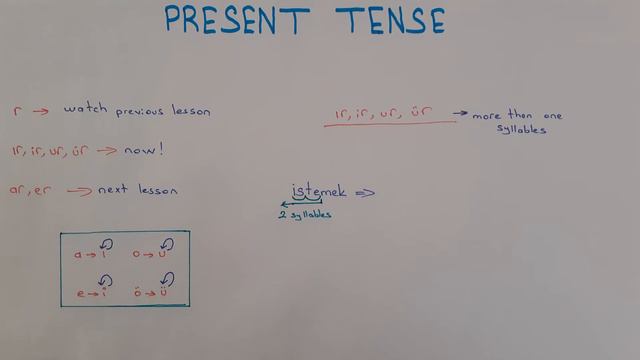 PRESENT TENSE
r → watch previous lesson
ır, ir, ur, ür → now!
ar, er → next lesson
a → ı o → u
e → i ö → ü
ır, ir, ur, ür → more than one
syllables
istemek ⇒
2 syllables